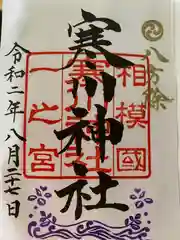 八方除
相模國
寒川神社
一之宮
令和二年八月二十七日